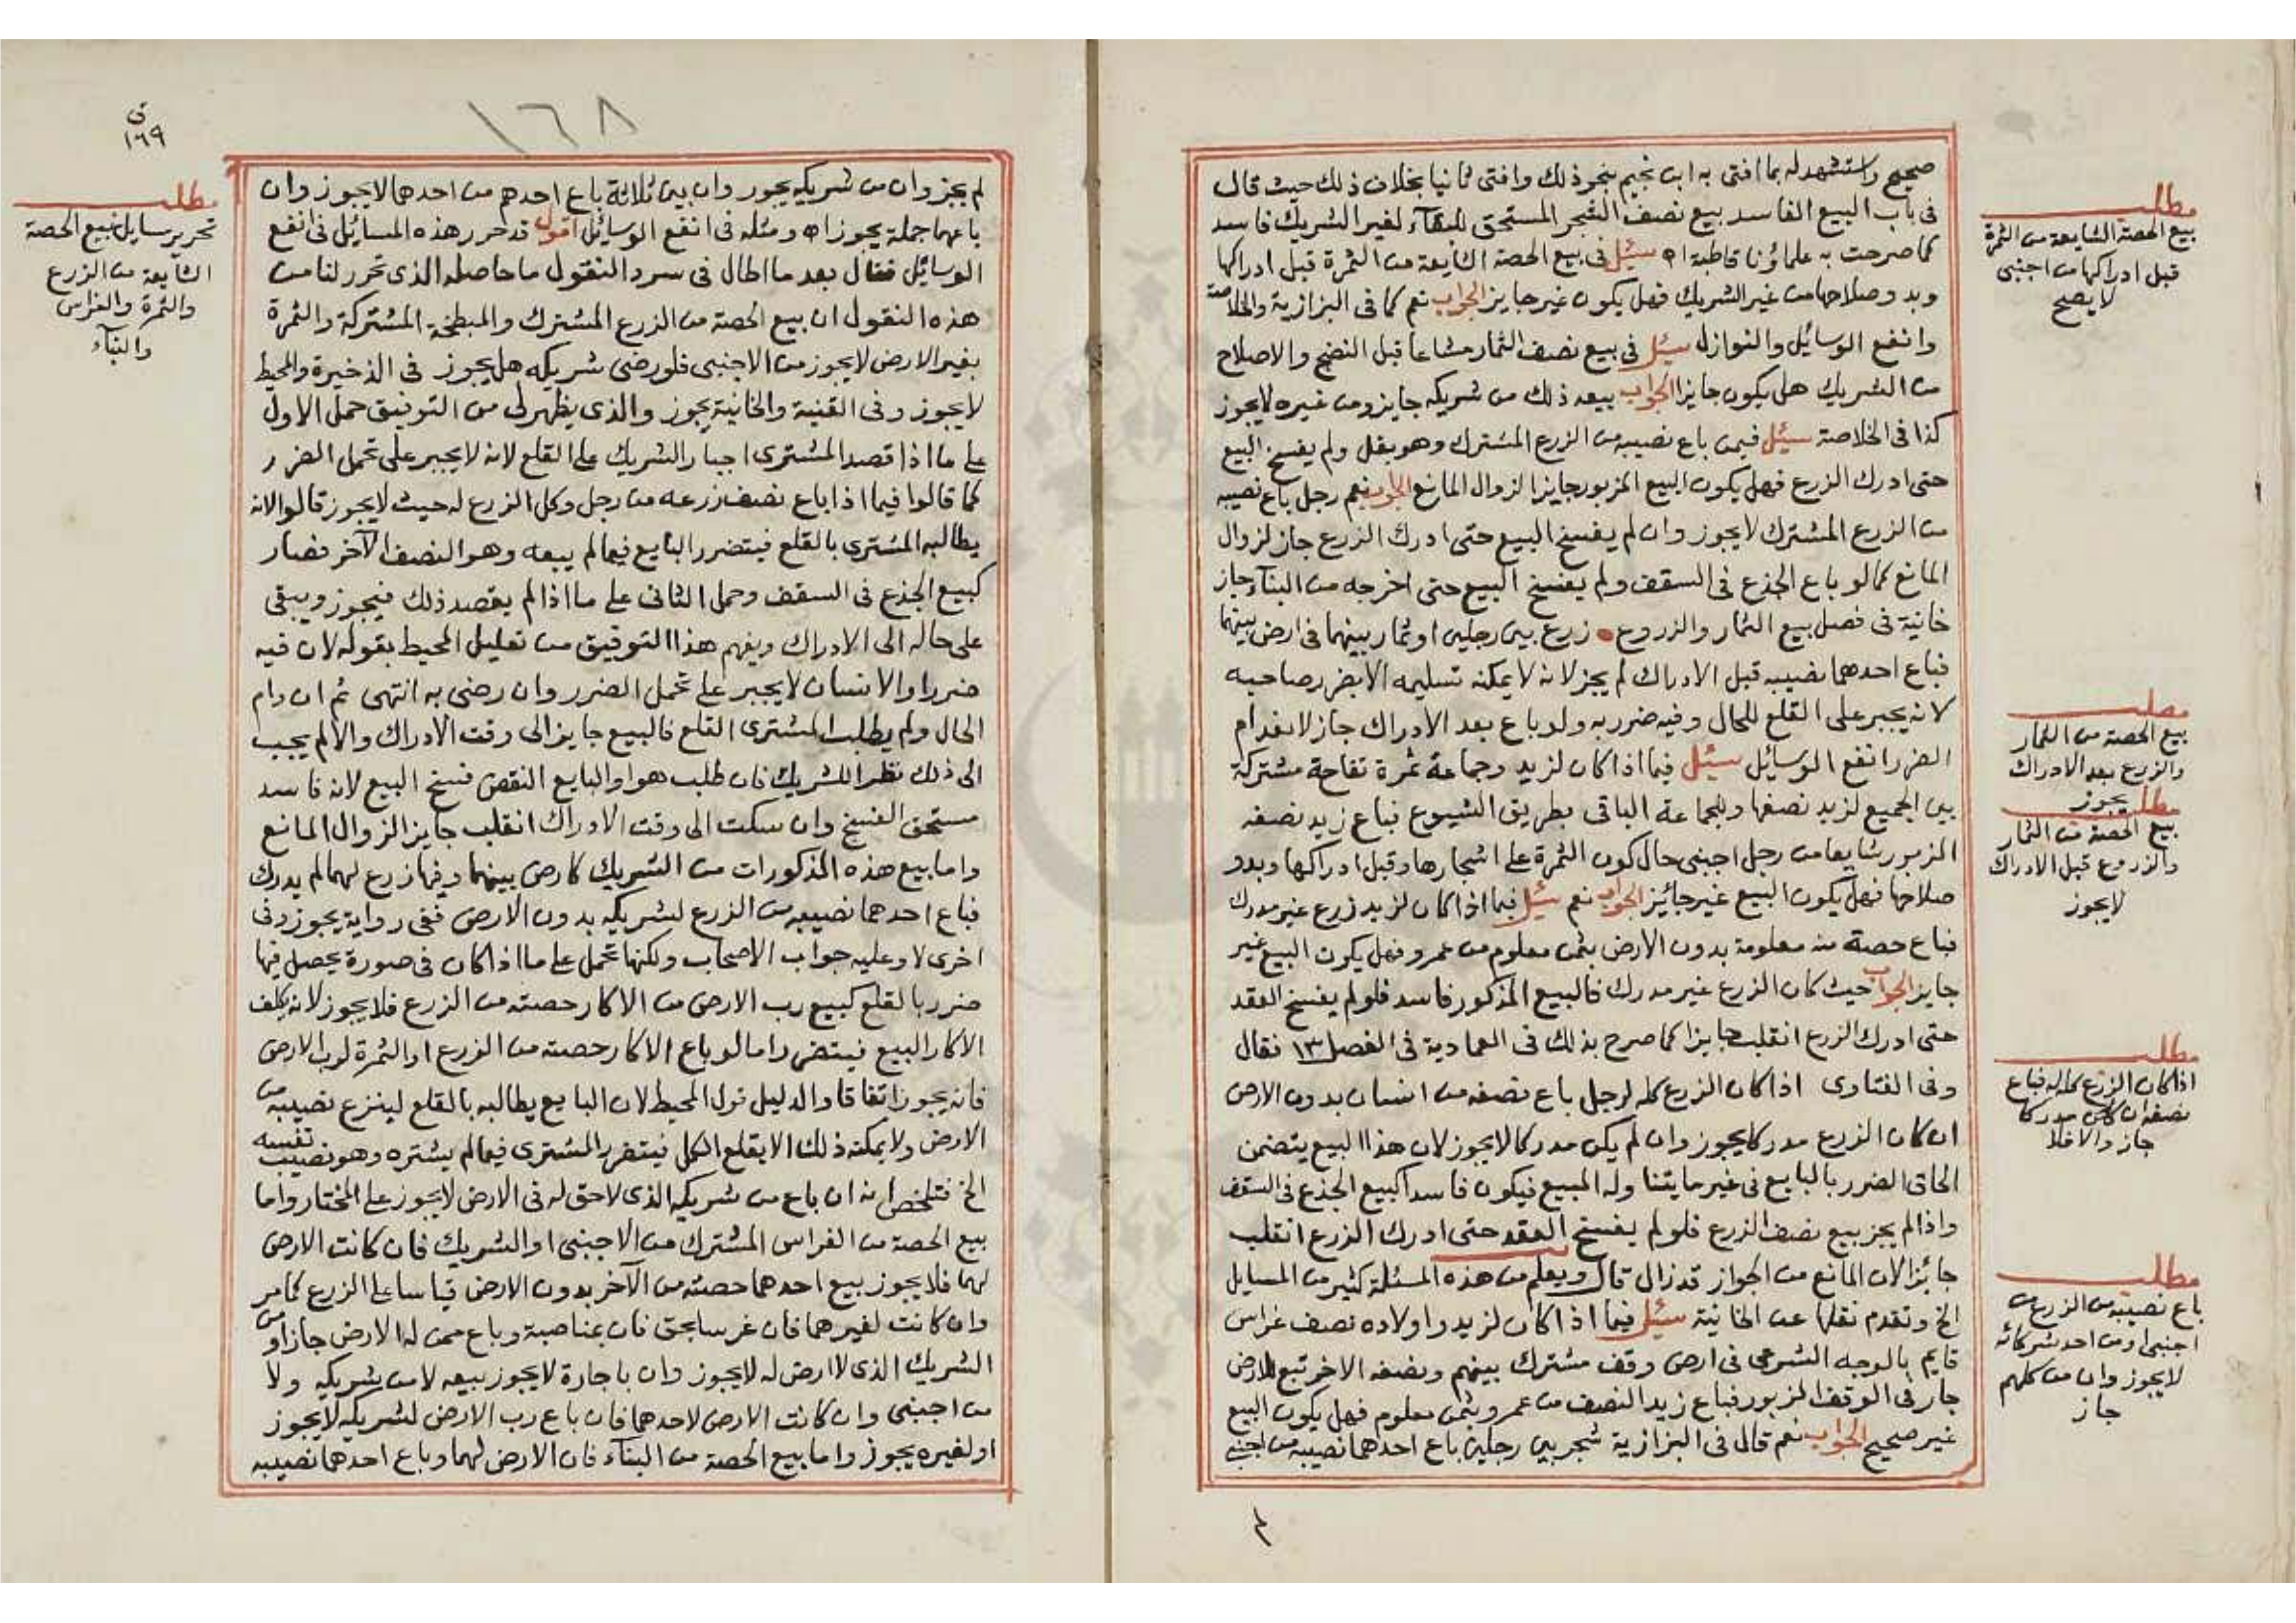 صحيح واستشهد له بما افتى به ابن نجيم بنحو ذلك وافتى ثانيا بخلاف ذلك حيث قال
في باب البيع الفاسد بيع نصف الشجر المستحق للبقاء لغير الشريك فاسد
كما صرحت به علماؤنا قاطبة اه سئل في بيع الحصة الشايعة من الثمرة قبل ادراكها
وبدو صلاحها من غير الشريك فهل يكون غير جايز الجواب نعم كما في البزازية والخلاصة
وانفع الوسائل والنوازل سئل في بيع نصف الثمار مشاعا قبل النضج والاصلاح
من الشريك هل يكون جايزا الجواب بيعه ذلك من شريكه جايز ومن غيره لايجوز
كذا في الخلاصة سئل فيمن باع نصيبه من الزرع المشترك وهو بقل ولم يفسخ البيع
حتى ادرك الزرع فهل يكون البيع المزبور جايزا لزوال المانع الجواب نعم رجل باع نصيبه
من الزرع المشترك لايجوز وان لم يفسخ البيع حتى ادرك الزرع جاز لزوال
المانع كما لو باع الجذع في السقف ولم يفسخ البيع حتى اخرجه من البناء جاز
خانية في فصل بيع الثمار والزروع زرع بين رجلين او ثمار بينهما في ارض بينهما
فباع احدهما نصيبه قبل الادراك لم يجز لانه لا يمكنه تسليمه الا بضرر صاحبه
لانه يجبر على القلع للحال وفيه ضرر به ولو باع بعد الادراك جاز لانعدام
الضرر انفع الوسائل سئيل فيما اذا كان لزيد وجماعة ثمرة تفاحة مشتركة
بين الجميع لزيد نصفها وللجماعة الباقي بطريق الشيوع فباع زيد نصفه
المزبور شايعا من رجل اجنبي حال كون الثمرة على اشجارها وقبل ادراكها وبدو
صلاحها فهل يكون البيع غير جائيز الجواب نعم سئيل فيما اذا كان لزيد زرع غير مدرك
فباع حصة منه معلومة بدون الارض بثمن معلوم من عمرو فهل يكون البيع غير
جايز الجواب حيث كان الزرع غير مدرك فالبيع المذكور فاسد فلو لم يفسخ العقد
حتى ادرك الزرع انقلب جايزا كما صرح بذلك في العمادية في الفصل ١٣ فقال
وفي الفتاوى اذا كان الزرع كله لرجل باع نصفه من انسان بدون الارض
ان كان الزرع مدركا يجوز وان لم يكن مدركا لايجوز لان هذا البيع يتضمن
الحاق الضرر بالبايع في غير ما يتناوله المبيع فيكون فاسدا كبيع الجذع في السقف
واذا لم يجز بيع نصف الزرع فلو لم يفسخ العقد حتى ادرك الزرع انقلب
جائزا لان المانع من الجواز قد زال قال ويعلم من هذه المسئلة كثير من المسايل
الخ وتقدم نقلها عن الخانية سئيل فيما اذا كان لزيد واولاده نصف غراس
قايم بالوجه الشرعي في ارض وقف مشترك بينهم ونصفه الاخر تبع للارض
جار في الوقف المزبور فباع زيد النصف من عمرو بثمن معلوم فهل يكون البيع
غير صحيح الجواب نعم قال في البزازية شجر بين رجلين باع احدهما نصيبه من اجنبي
مطلب
بيع الحصة الشايعة من الثمرة
قبل ادراكها من اجنبي
لا يصح
مطلب
بيع الحصة من الثمار
والزرع بعد الادراك
يجوز
مطلب
بيع الحصة من الثمار
والزروع قبل الادراك
لايجوز
مطلب
اذا كان الزرع كله له فباع
نصفه ان كان مدركا
جاز والا فلا
مطلب
باع نصيبه من الزرع من
اجنبي او من احد شركائه
لايجوز وان من كلهم
جاز
١٦٨
١٦٩
لم يجز وان من شريكه يجوز وان بين ثلاثة باع احدهم من احدهما لايجوز وان
باعهما جملة يجوز اه ومثله في انفع الوسائيل اقول قد حرر هذه المسائيل في انفع
الوسائيل فقال بعد ما اطال في سرد النقول ما حاصله الذي تحرر لنا من
هذه النقول ان بيع الحصة من الزرع المشترك والمبطخة المشتركة والثمرة
بغير الارض لايجوز من الاجنبي فلو رضي شريكه هل يجوز في الذخيرة والمحيط
لايجوز وفي القنية والخانية يجوز والذي يظهر لي من التوفيق حمل الاول
على ما اذا قصد المشتري اجبار الشريك على القلع لانه لايجبر على تحمل الضرر
كما قالوا فيما اذا باع نصف زرعه من رجل وكل الزرع له حيث لايجوز قالوا لانه
يطالبه المشتري بالقلع فيتضرر البايع فيما لم يبعه وهو النصف الآخر فصار
كبيع الجذع في السقف وحمل الثاني على ما اذا لم يقصد ذلك فيجوز ويبقى
على حاله الى الادراك ويفهم هذا التوفيق من تعليل المحيط بقوله لان فيه
ضررا والانسان لايجبر على تحمل الضرر وان رضي به انتهى ثم ان دام
الحال ولم يطلب المشتري القلع فالبيع جايز الى وقت الادراك والا لم يجب
الى ذلك نظرا للشريك فان طلب هو او البايع النقض فسخ البيع لانه فاسد
مستحق الفسخ وان سكت الى وقت الادراك انقلب جايزا لزوال المانع
واما بيع هذه المذكورات من الشريك كارض بينهما وفيها زرع لهما لم يدرك
فباع احدهما نصيبه من الزرع لشريكه بدون الارض ففي رواية يجوز وفي
اخرى لا وعليه جواب الاصحاب ولكنها تحمل على ما اذا كان في صورة يحصل فيها
ضرر بالقلع كبيع رب الارض من الاكار حصته من الزرع فلايجوز لانه يكلف
الاكار البيع فيتضر واما لو باع الاكار حصته من الزرع او الثمرة لرب الارض
فانه يجوز اتفاقا والدليل قول المحيط لان البايع يطالبه بالقلع لينزع نصيبه من
الارض ولا يمكنه ذلك الا بقلع الكل فيتضرر المشتري فيما لم يشتره وهو نصيب نفسه
الخ فتلخص انه ان باع من شريكه الذي لا حق له في الارض لايجوز على المختار واما
بيع الحصة من الغراس المشترك من الاجنبي او الشريك فان كانت الارض
لهما فلايجوز بيع احدهما حصته من الآخر بدون الارض قياسا على الزرع كما مر
وان كانت لغيرهما فان غرسا بحق فان بمناصبة وباع ممن له الارض جاز او من
الشريك الذي لا ارض له لايجوز وان باجارة لايجوز بيعه لا من شريكه ولا
من اجنبي وان كانت الارض لاحدهما فان باع رب الارض لشريكه لايجوز
او لغيره يجوز واما بيع الحصة من البناء فان الارض لهما وباع احدهما نصيبه
مطلب
تحرير مسايل بيع الحصة
الشايعة من الزرع
والثمرة والغراس
والبناء